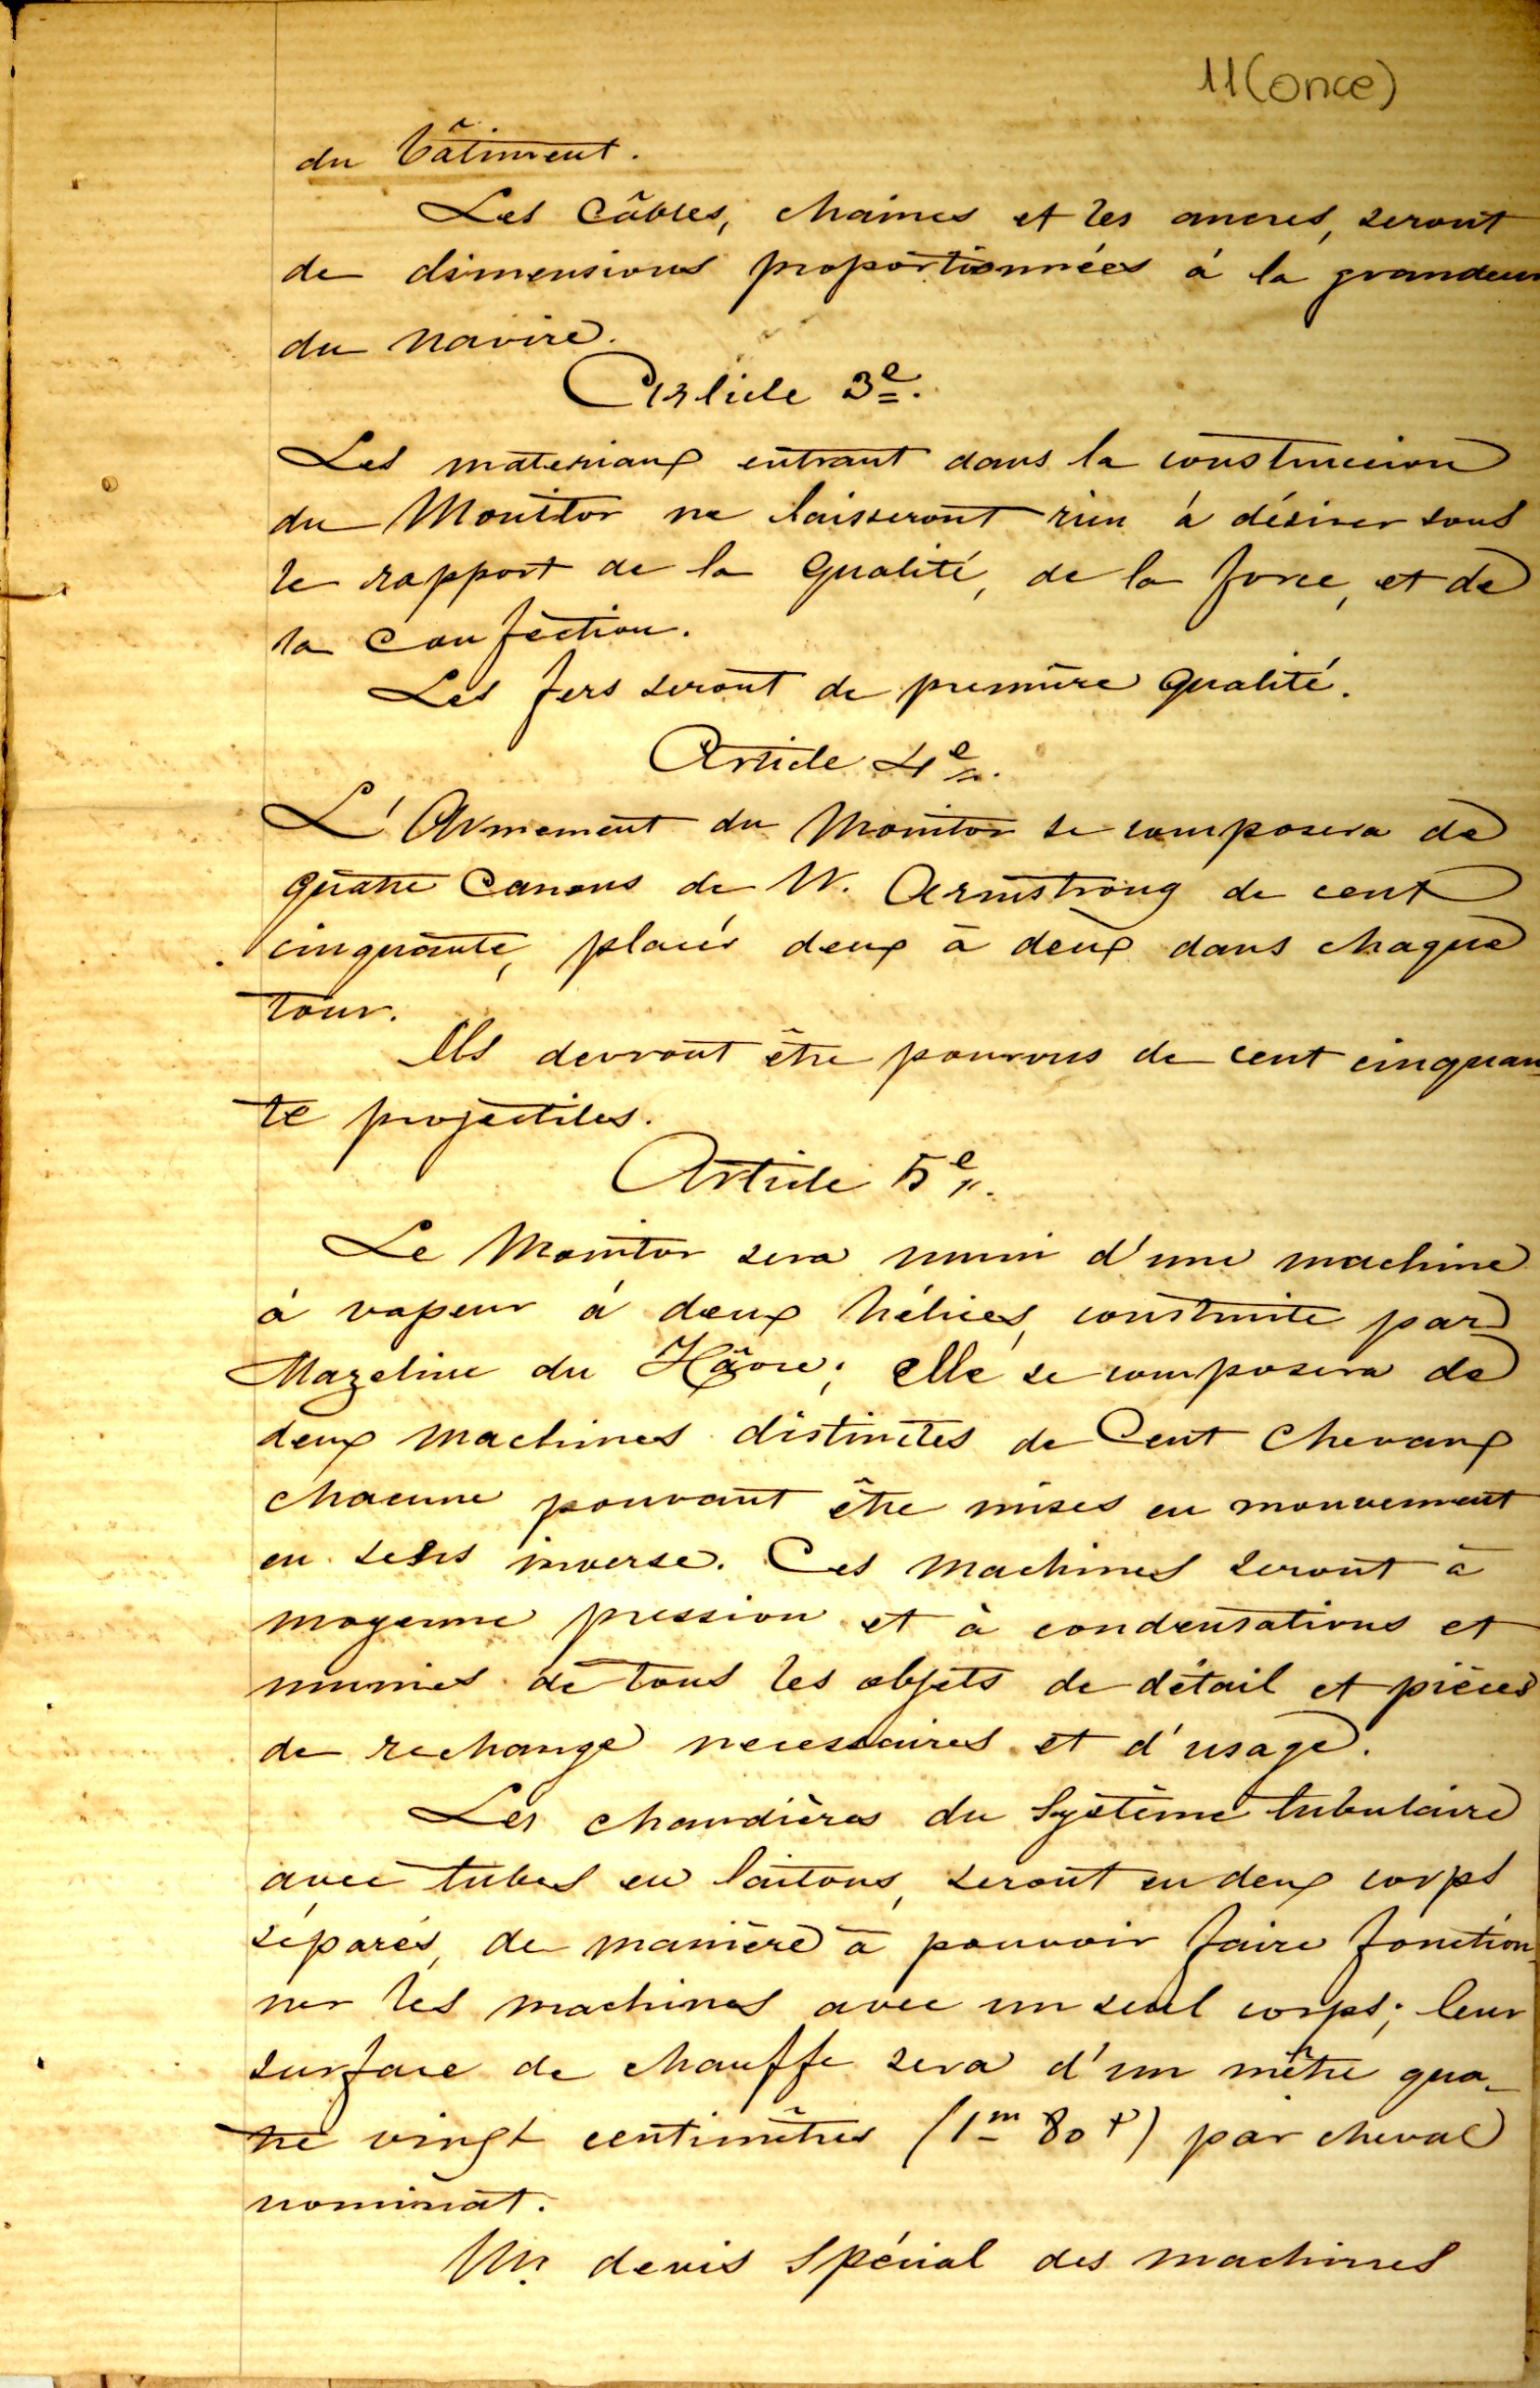 11(once)
du bâtiment.
Les Câbles, chaines et les ancres, seront
de dimensions proportionnées à la grandeur
du navire.
Article 3e.
Les materiaux entrant dans la construccion
du Monitor ne laisseront rien à désirer sous
le rapport de la qualité, de la force, et de
la confection.
Les fers seront de première qualité.
Article 4e.
L'Armement du Monitor se composera de
quatre Canons de W. Armstrong de cent
cinquante, placés deux à deux dans chaque
tour.
Ils devront être pourvus de cent cinquan
te projectiles.
Article 5e.
Le Monitor sera muni d'une machine
à vapeur à deux hélices, construite par
Mazeline du Hâvre; elle se composera de
deux machines distinctes de Cent Chevaux
chacune pouvant être mises en mouvement
en sens inverse. Ces machines seront à
moyenne pression et à condensations et
munies de tous les objets de détail et pièces
de rechange necessaires et d'usage.
Les chaudières du Système tubulaire
avec tubes en laitons, seront en deux corps
séparés, de manière à pouvoir faire fonction
ner les machines avec un seul corps; leur
surface de chauffe sera d'un mètre qua-
tre vingt centimètres (1m 80) par cheval
nominat.
Un devis Spécial des machines